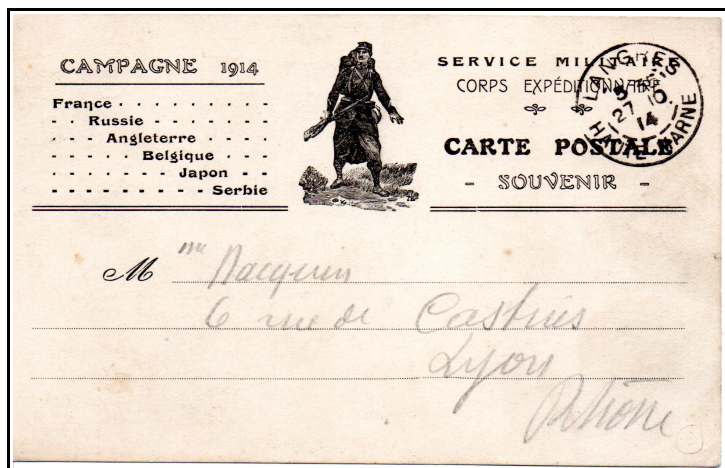 CAMPAGNE 1914
France . . . . . . . . . .
. . Russie . . . . . . . .
. . . Angleterre . . . .
. . . . . Belgique . . .
. . . . . . . Japon - -
- - - - - - - - - Serbie
SERVICE MILITAIRE
CORPS EXPÉDITIONNAIRE
CARTE POSTALE
- SOUVENIR -
LANGRES
27 - 10
14
HAUTE MARNE
Mme
6 rue de Castries
Lyon
Rhône